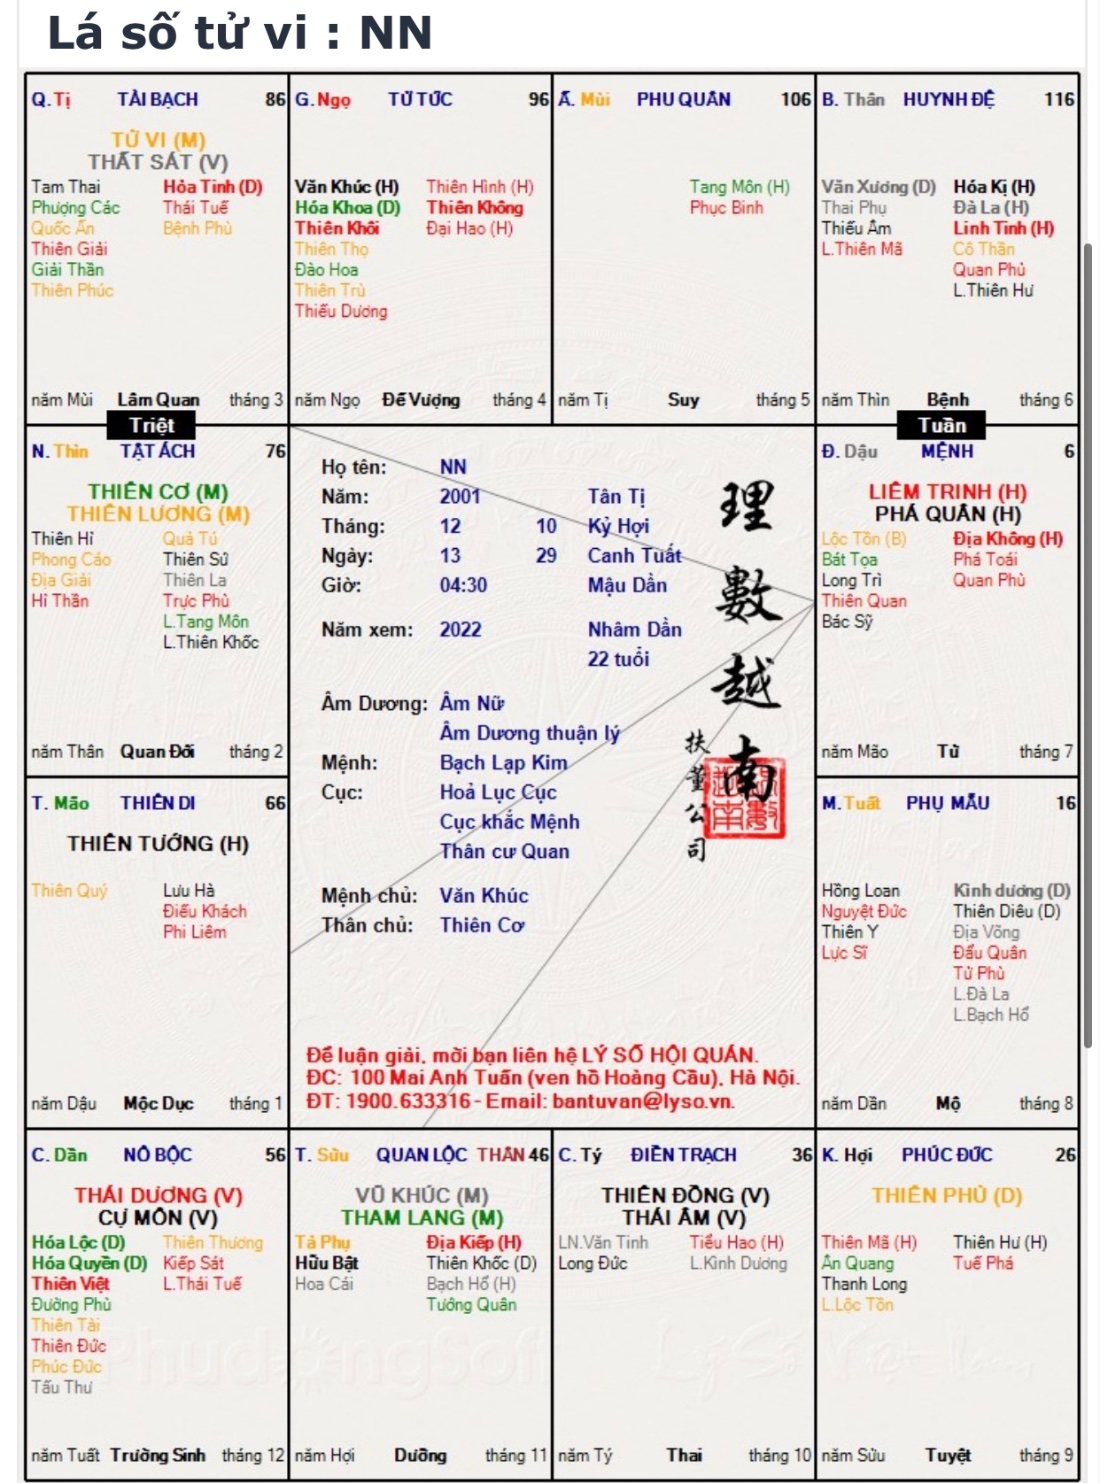 Lá số tử vi : NN
Q. Tị TÀI BẠCH 86
TỬ VI (M)
THẤT SÁT (V)
Tam Thai Hỏa Tinh (D)
Phượng Các Thái Tuế
Quốc Ấn Bệnh Phù
Thiên Giải
Giải Thần
Thiên Phúc
năm Mùi Lâm Quan tháng 3
G. Ngọ TỬ TỨC 96
Văn Khúc (H) Thiên Hình (H)
Hóa Khoa (D) Thiên Không
Thiên Khôi Đại Hao (H)
Thiên Thọ
Đào Hoa
Thiên Trù
Thiếu Dương
năm Ngọ Đế Vượng tháng 4
Ấ. Mùi PHU QUÂN 106
Tang Môn (H)
Phục Binh
năm Tị Suy tháng 5
B. Thân HUYNH ĐỆ 116
Văn Xương (D) Hóa Kị (H)
Thai Phụ Đà La (H)
Thiếu Âm Linh Tinh (H)
L.Thiên Mã Cô Thần
Quan Phủ
L.Thiên Hư
năm Thìn Bệnh tháng 6
Triệt
Tuần
N. Thìn TẬT ÁCH 76
THIÊN CƠ (M)
THIÊN LƯƠNG (M)
Thiên Hỉ Quả Tú
Phong Cáo Thiên Sứ
Địa Giải Thiên La
Hỉ Thần Trực Phù
L.Tang Môn
L.Thiên Khốc
năm Thân Quan Đới tháng 2
Họ tên: NN
Năm: 2001 Tân Tị
Tháng: 12 10 Kỷ Hợi
Ngày: 13 29 Canh Tuất
Giờ: 04:30 Mậu Dần
Năm xem: 2022 Nhâm Dần
22 tuổi
Âm Dương: Âm Nữ
Âm Dương thuận lý
Mệnh: Bạch Lạp Kim
Cục: Hoả Lục Cục
Cục khắc Mệnh
Thân cư Quan
Mệnh chủ: Văn Khúc
Thân chủ: Thiên Cơ
理
數
越
南
扶
董
公
司
Để luận giải, mời bạn liên hệ LÝ SỐ HỘI QUÁN.
ĐC: 100 Mai Anh Tuấn (ven hồ Hoàng Cầu), Hà Nội.
ĐT: 1900.633316 - Email: bantuvan@lyso.vn.
Đ. Dậu MỆNH 6
LIÊM TRINH (H)
PHÁ QUÂN (H)
Lộc Tồn (B) Địa Không (H)
Bát Tọa Phá Toái
Long Trì Quan Phù
Thiên Quan
Bác Sỹ
năm Mão Tử tháng 7
T. Mão THIÊN DI 66
THIÊN TƯỚNG (H)
Thiên Quý Lưu Hà
Điếu Khách
Phi Liêm
năm Dậu Mộc Dục tháng 1
M. Tuất PHỤ MẪU 16
Hồng Loan Kình dương (D)
Nguyệt Đức Thiên Diêu (D)
Thiên Y Địa Võng
Lực Sĩ Đẩu Quân
Tử Phù
L.Đà La
L.Bạch Hổ
năm Dần Mộ tháng 8
C. Dần NÔ BỘC 56
THÁI DƯƠNG (V)
CỰ MÔN (V)
Hóa Lộc (D) Thiên Thương
Hóa Quyền (D) Kiếp Sát
Thiên Việt L.Thái Tuế
Đường Phù
Thiên Tài
Thiên Đức
Phúc Đức
Tấu Thư
năm Tuất Trường Sinh tháng 12
T. Sửu QUAN LỘC THÂN 46
VŨ KHÚC (M)
THAM LANG (M)
Tả Phụ Địa Kiếp (H)
Hữu Bật Thiên Khốc (D)
Hoa Cái Bạch Hổ (H)
Tướng Quân
năm Hợi Dưỡng tháng 11
C. Tý ĐIỀN TRẠCH 36
THIÊN ĐỒNG (V)
THÁI ÂM (V)
LN.Văn Tinh Tiểu Hao (H)
Long Đức L.Kình Dương
năm Tý Thai tháng 10
K. Hợi PHÚC ĐỨC 26
THIÊN PHỦ (D)
Thiên Mã (H) Thiên Hư (H)
Ân Quang Tuế Phá
Thanh Long
L.Lộc Tồn
năm Sửu Tuyệt tháng 9